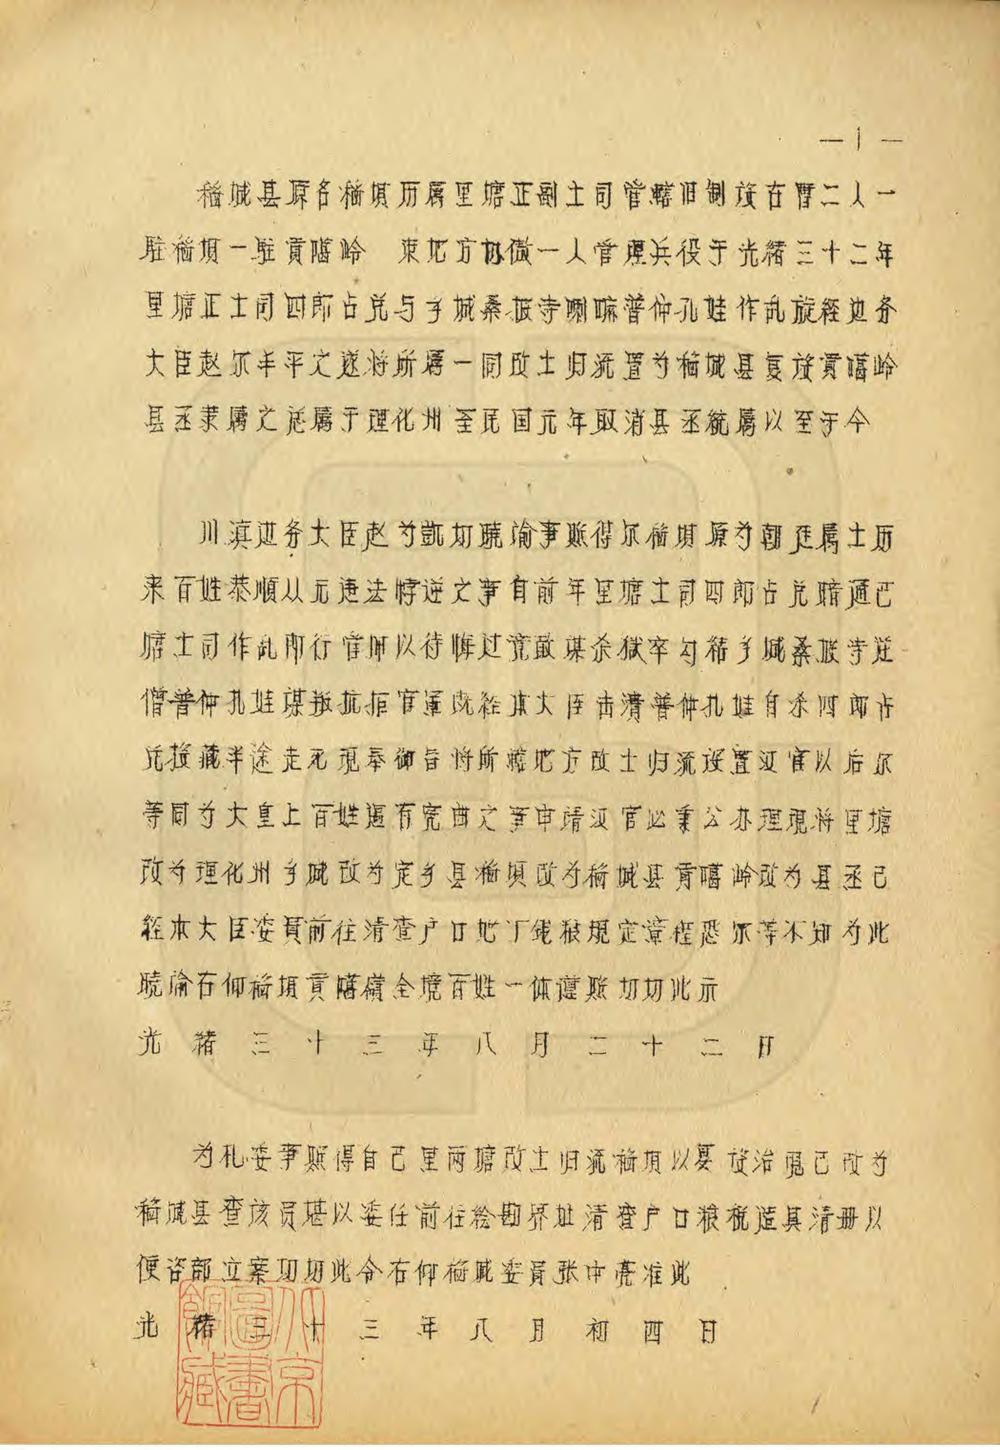 —1—
稲城县原名稲垻历属里塘正副土司管辖旧制设古曹二人一
驻稲垻一驻貢噶岭 東地方协傲一人管理兵役于光绪三十二年
里塘正土司四郎占兑与乡城桑披寺喇嘛普仲孔娃作乱旋经边务
大臣赵尔丰平之遂将所属一同改土归流置为稲城县复设貢噶岭
县丞隶属之迄属于理化州至民国元年取消县丞統属以至于今
川滇边务大臣赵为凯切晓谕事照得尔稲垻原为朝廷属土历
来百姓恭顺从无违法悖逆之事自前年里塘土司四郎占兑暗通巴
塘土司作乱即行官押以待悔过竟敢谋杀獄卒勾结乡城桑披寺逆
僧普仲孔娃谋叛抗拒官軍既经本大臣击清普仲孔娃自杀四郎占
兑投藏半途走死現奉御旨将所辖地方改土归流设置汉官以后尔
等同为大皇上百姓遇有冤曲之事申请汉官必秉公办理現将里塘
改为理化州乡城改为定乡县稲垻改为稲城县貢噶岭改为县丞已
经本大臣委員前往清查户口地丁钱粮規定章程恐尔等不知为此
晓谕右仰稲垻貢噶嶺全境百姓一体遵照切切此示
光绪三十三年八月二十二日
为札委事照得自巴里两塘改土归流稲垻以要设治現已改为
稲城县查该員堪以委任前往绘勘界址清查户口粮税造具清册以
便咨部立案切切此令右仰稲城委員张中亮准此
光绪三十三年八月初四日
北京圖書館藏